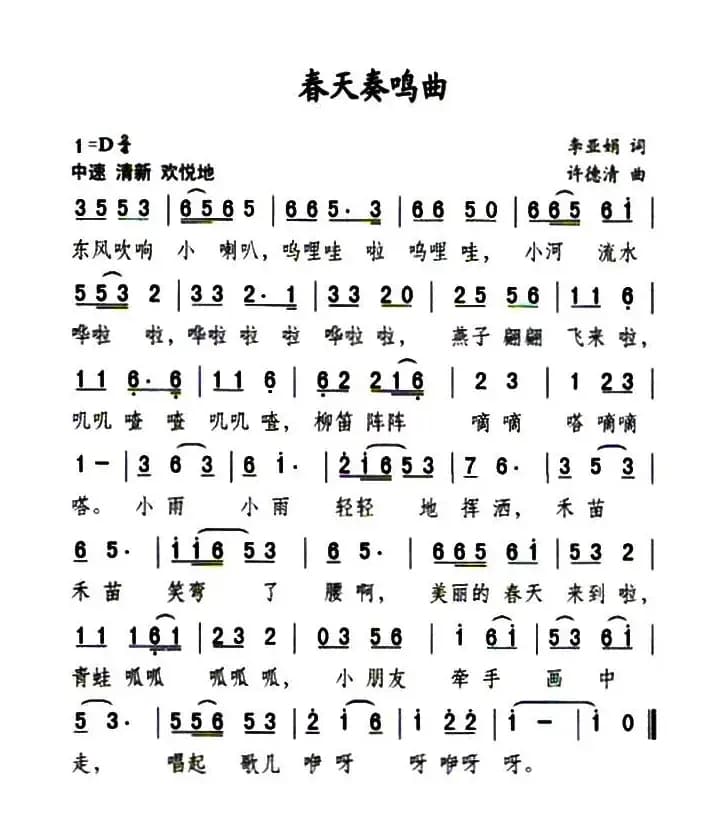 春天奏鸣曲
1=D 2/4
李亚娟 词
中速 清新 欢悦地
许德清 曲
3 5 5 3 | 6 5 6 5 | 6 6 5· 3 | 6 6 5 0 | 6 6 5 6 i |
东风吹响 小 喇叭，呜哩哇 啦 呜哩 哇， 小河 流水
5 5 3 2 | 3 3 2· 1 | 3 3 2 0 | 2 5 5 6 | 1 1 6 |
哗啦 啦，哗啦 啦 啦 哗啦 啦， 燕子 翩翩 飞来 啦，
1 1 6· 6 | 1 1 6 | 6 2 2 1 6 | 2 3 | 1 2 3 |
叽叽 喳 喳 叽叽 喳， 柳笛 阵阵 嘀 嘀 嗒 嘀嘀
1 – | 3 6 3 | 6 i· | 2 i 6 5 3 | 7 6· | 3 5 3 |
嗒。 小 雨 小 雨 轻轻 地 挥 洒， 禾 苗
6 5· | i i 6 5 3 | 6 5· | 6 6 5 6 i | 5 3 2 |
禾 苗 笑弯 了 腰 啊， 美丽的 春天 来到 啦，
1 1 1 6 1 | 2 3 2 | 0 3 5 6 | i 6 i | 5 3 6 i |
青蛙 呱呱 呱呱 呱， 小 朋友 牵 手 画 中
5 3· | 5 5 6 5 3 | 2 i 6 | i 2 2 | i – | i 0 ‖
走， 唱起 歌儿 咿 呀 呀 咿呀 呀。